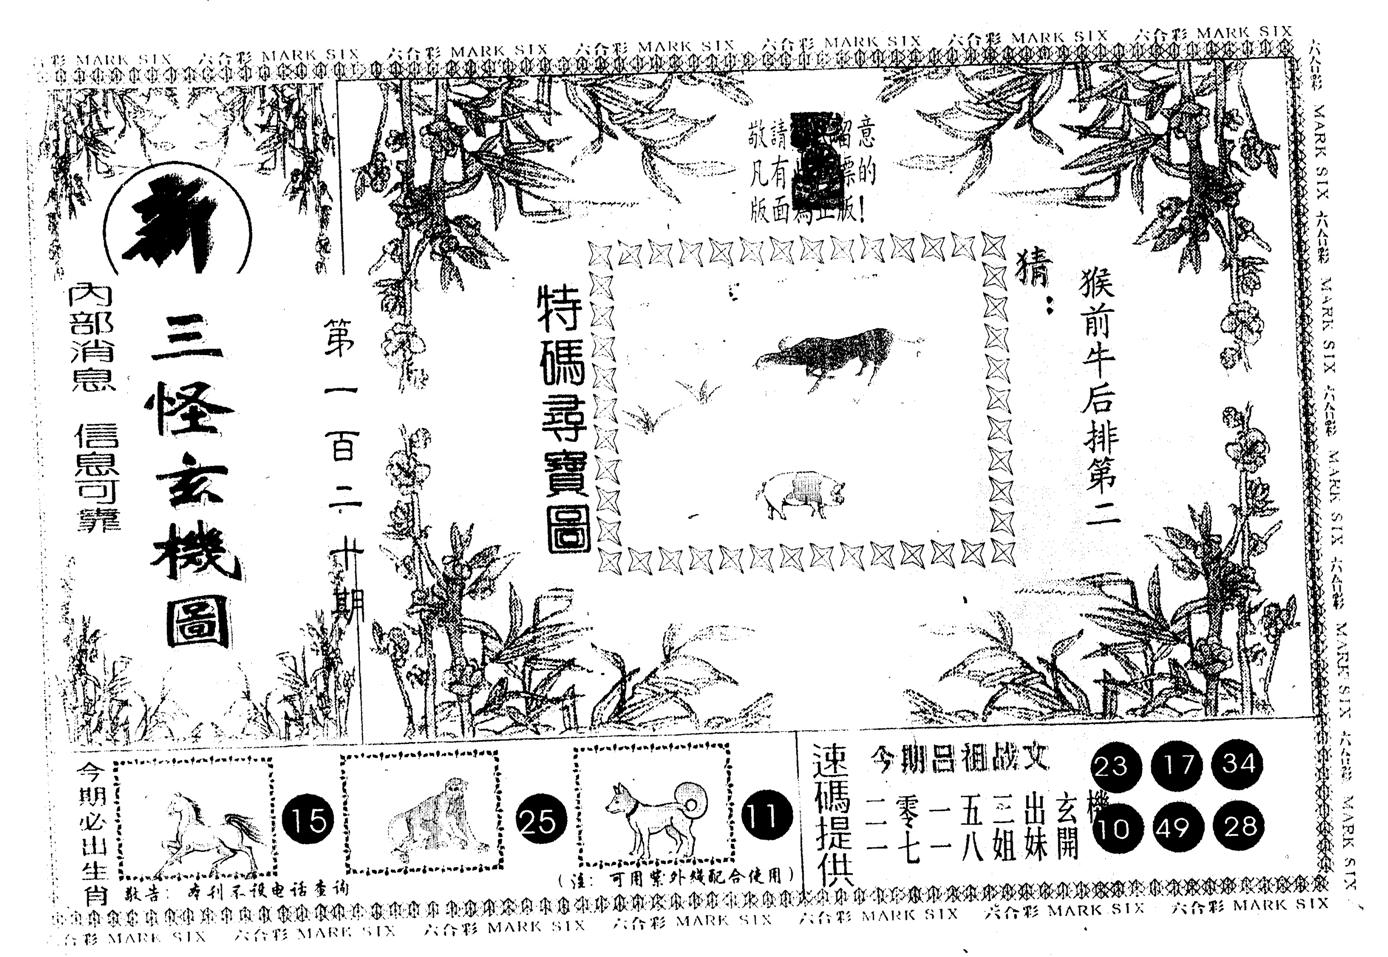 六合彩 MARK SIX 六合彩 MARK SIX 六合彩 MARK SIX 六合彩 MARK SIX 六合彩 MARK SIX 六合彩 MARK SIX 六合彩 MARK SIX
六合彩 MARK SIX 六合彩 MARK SIX 六合彩 MARK SIX 六合彩 MARK SIX 六合彩 MARK SIX
新
三怪玄機圖
內部消息 信息可靠
第一百二十期
敬請 留意
凡有 標的
版面為正版!
特碼尋寶圖
猜:
猴前牛后排第二
今期必出生肖
15
25
11
敬告: 本刊不设电话查询
(注: 可用紫外线配合使用)
速碼提供
今期呂祖战文
二零一五三出玄機
一七一八姐妹開
23 17 34
10 49 28
六合彩 MARK SIX 六合彩 MARK SIX 六合彩 MARK SIX 六合彩 MARK SIX 六合彩 MARK SIX 六合彩 MARK SIX 六合彩 MARK SIX